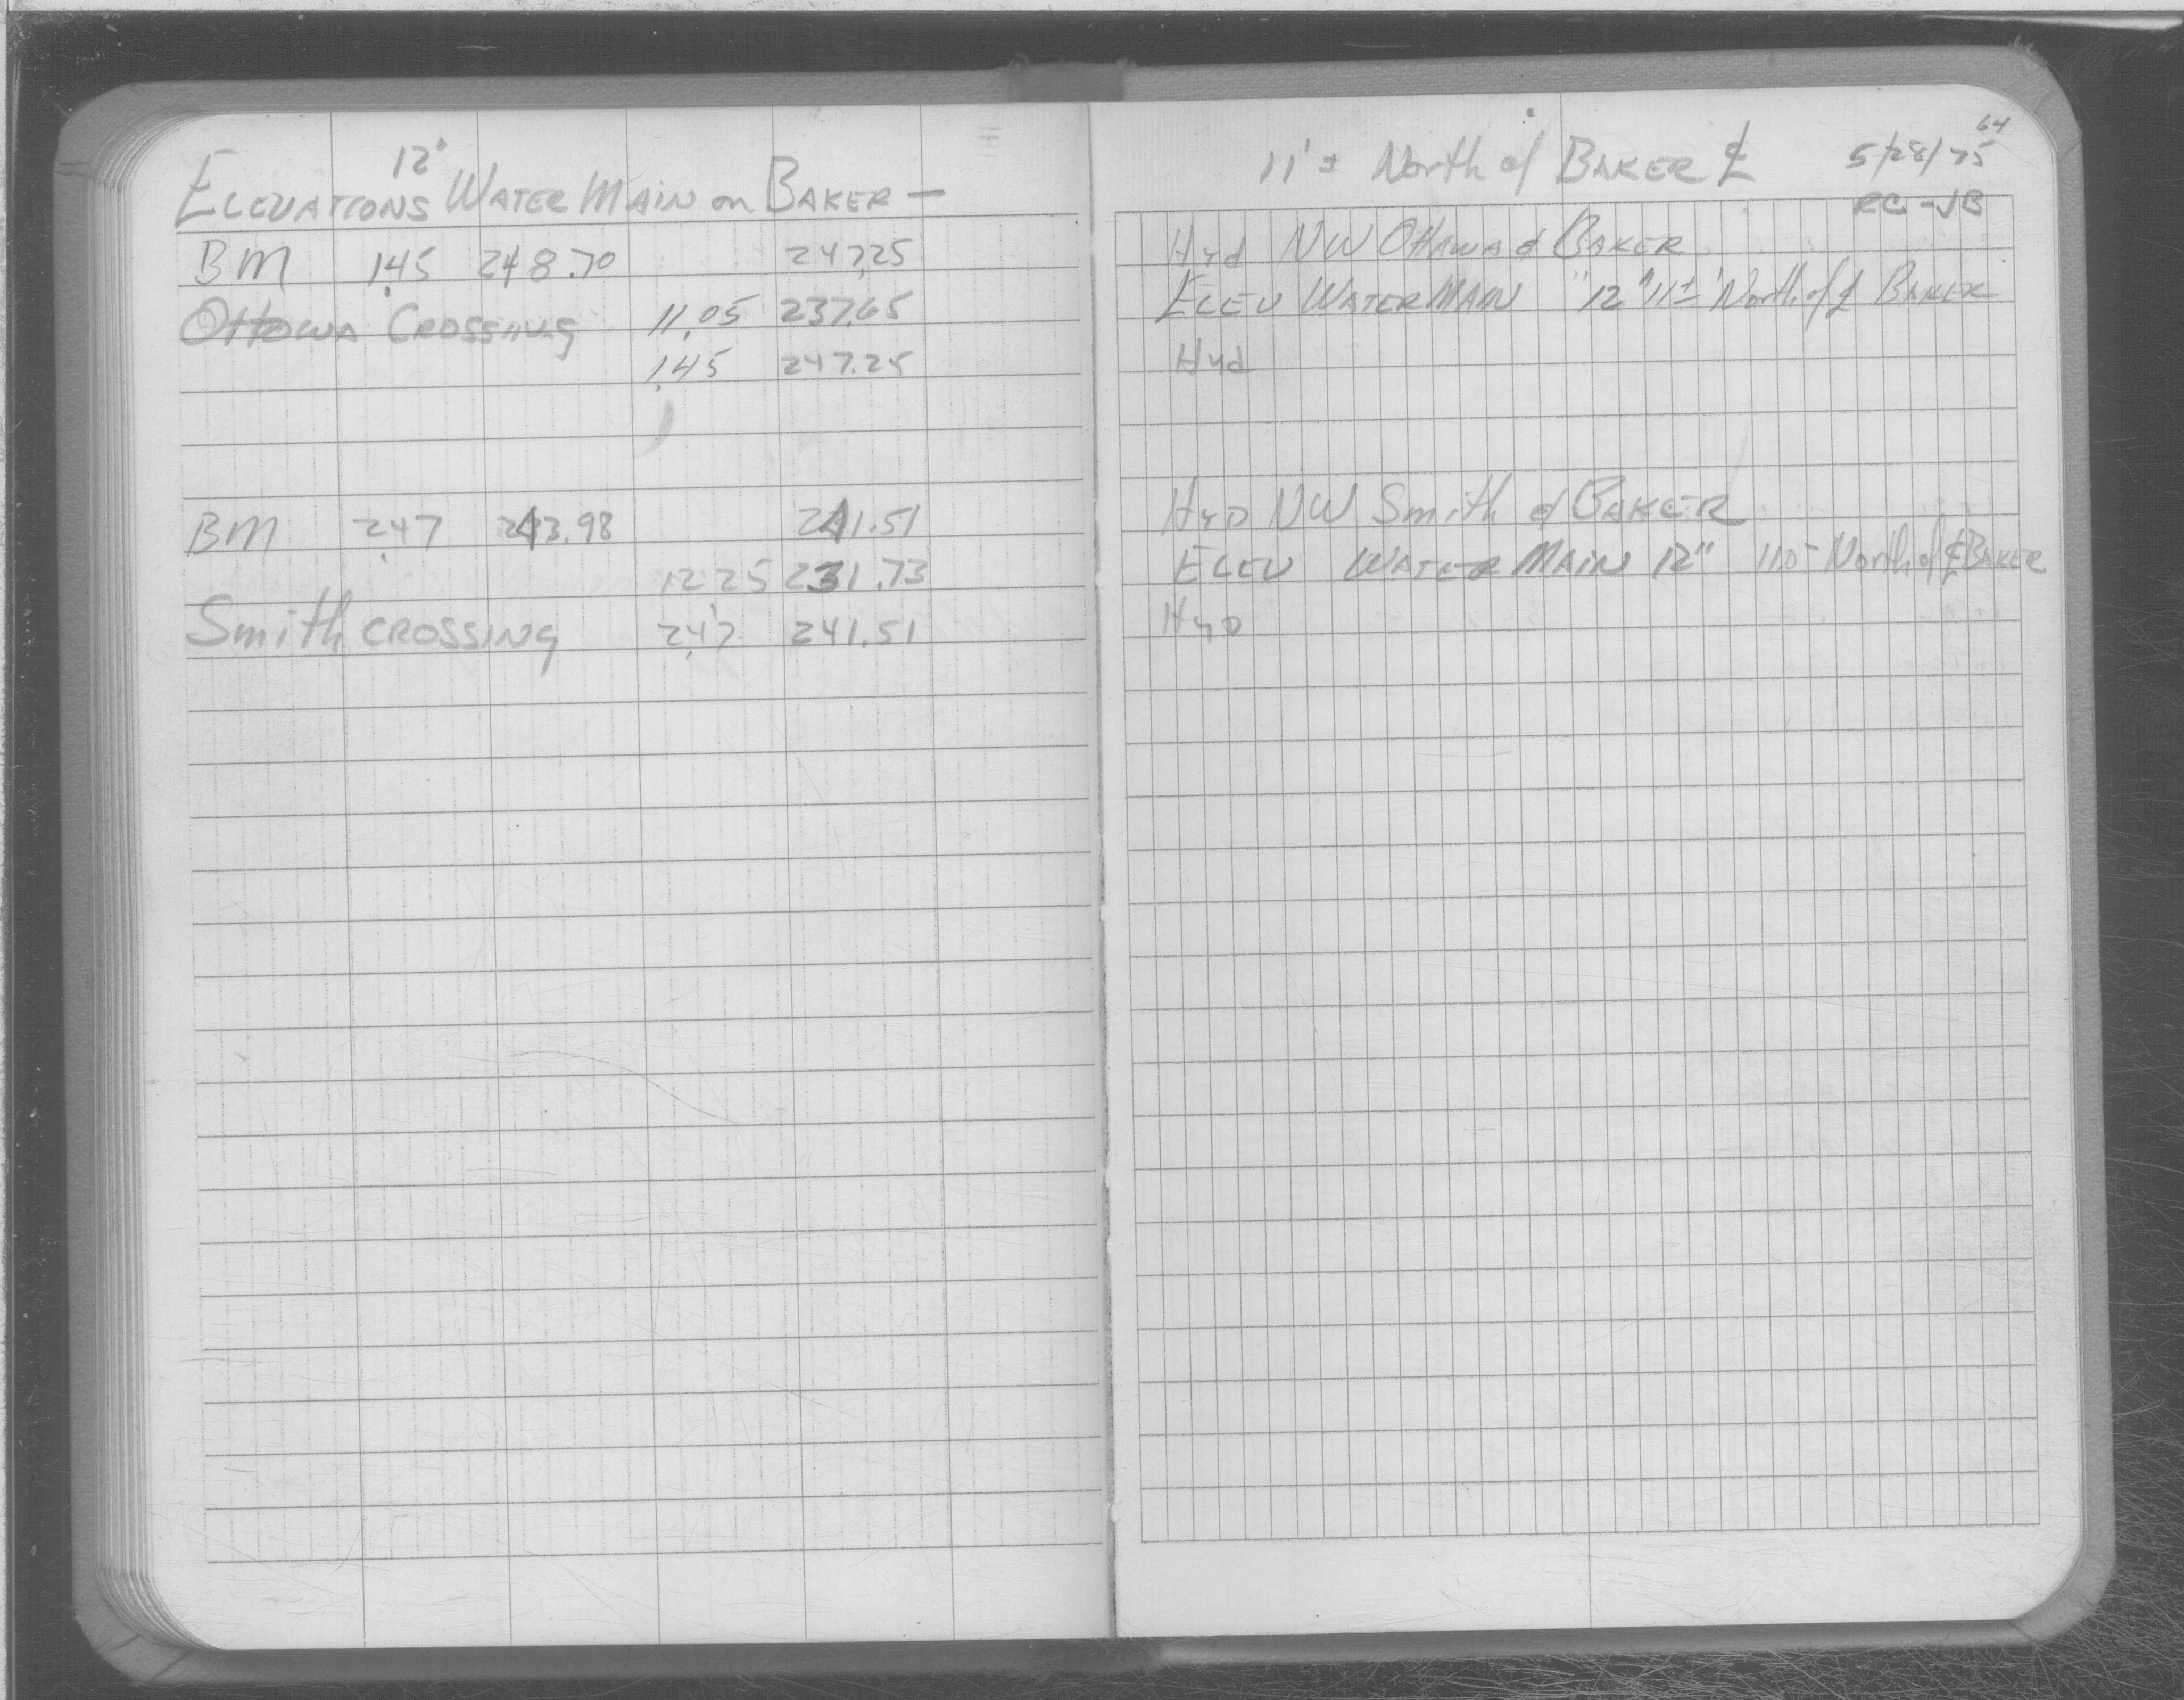 12"
ELEVATIONS WATER MAIN on BAKER —
BM 1.45 248.70 247.25
Ottowa CROSSING 11.05 237.65
1.45 247.25
BM 2.47 243.98 241.51
12.25 231.73
Smith CROSSING 2.47 241.51
64
11'± North of BAKER ℄ 5/28/75
RC-JB
Hyd NW Ottawa & BAKER
ELEV WATER MAIN "12" 11±' North of ℄ BAKER
Hyd
HYD NW Smith & BAKER
ELEV WATER MAIN 12" North of ℄ BAKER
HYD